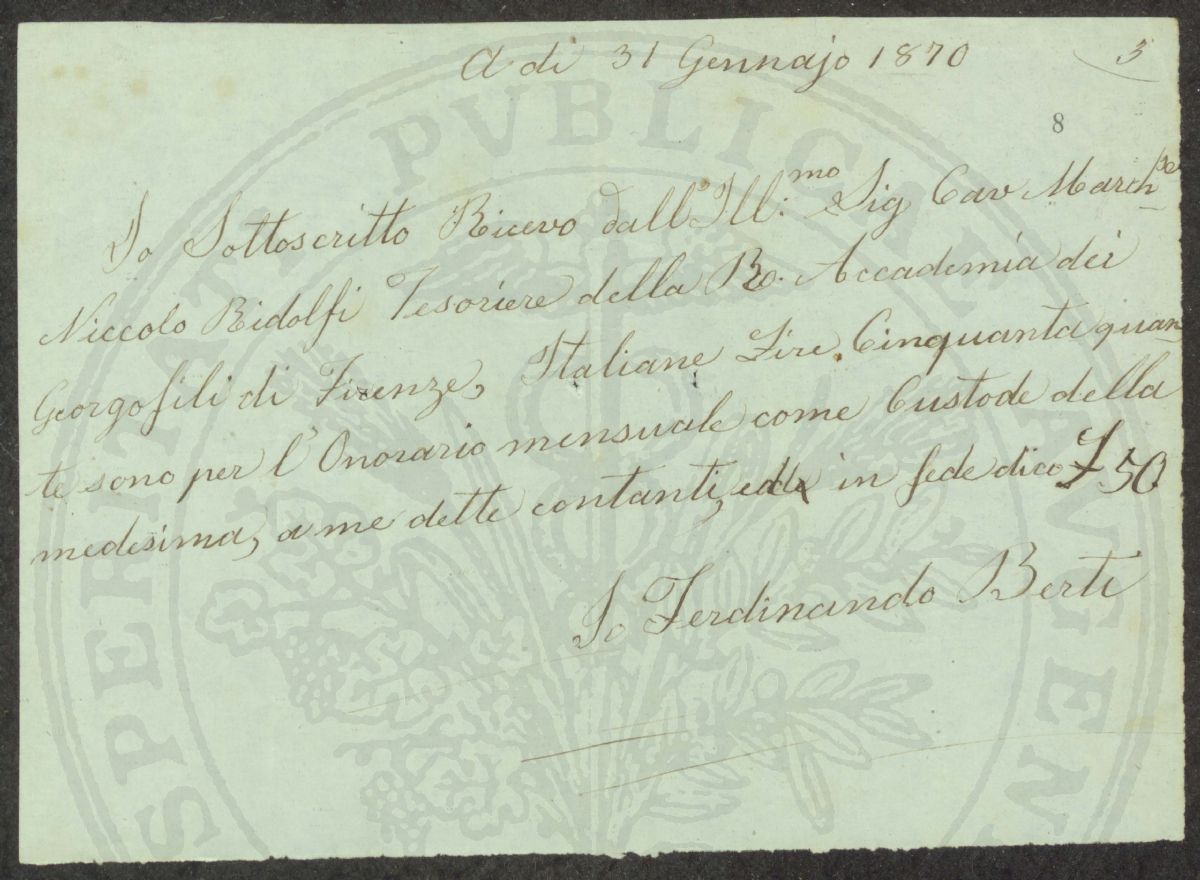 A di 31 Gennajo 1870
3
8
Io Sottoscritto Ricevo dall'Ill:mo Sig Cav March
Niccolo Ridolfi Tesoriere della R. Accademia dei
Georgofili di Firenze, Italiane Lire Cinquanta quan
te sono per l'Onorario mensuale come Custode della
medesima, a me dette contanti, in fede dico £ 50
Io Ferdinando Berti
PROSPERITATI PVBLICAE AVGENDAE